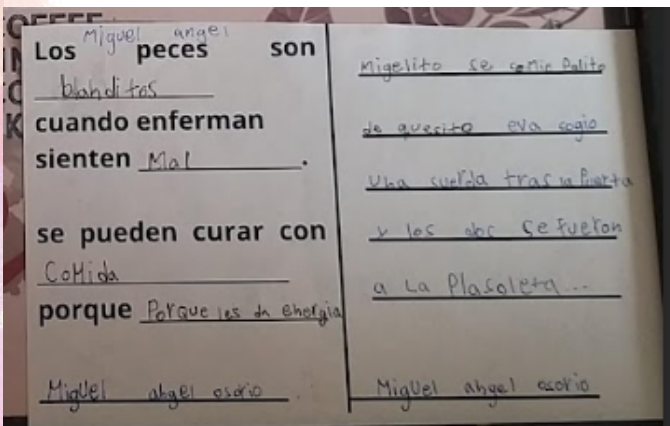 COFFEE
Miguel angel
Los peces son
blanditos
cuando enferman
sienten Mal.
se pueden curar con
CoMida
porque Porque les da energia
Miguel angel osorio
Migelito se comio Palito
de quesito eva cogio
una cuerda tras la Puerta
y los dos se fueron
a La Plasoleta...
Miguel angel osorio